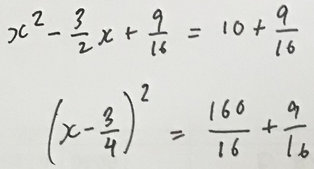 x² - 3/2 x + 9/16 = 10 + 9/16
(x - 3/4)² = 160/16 + 9/16